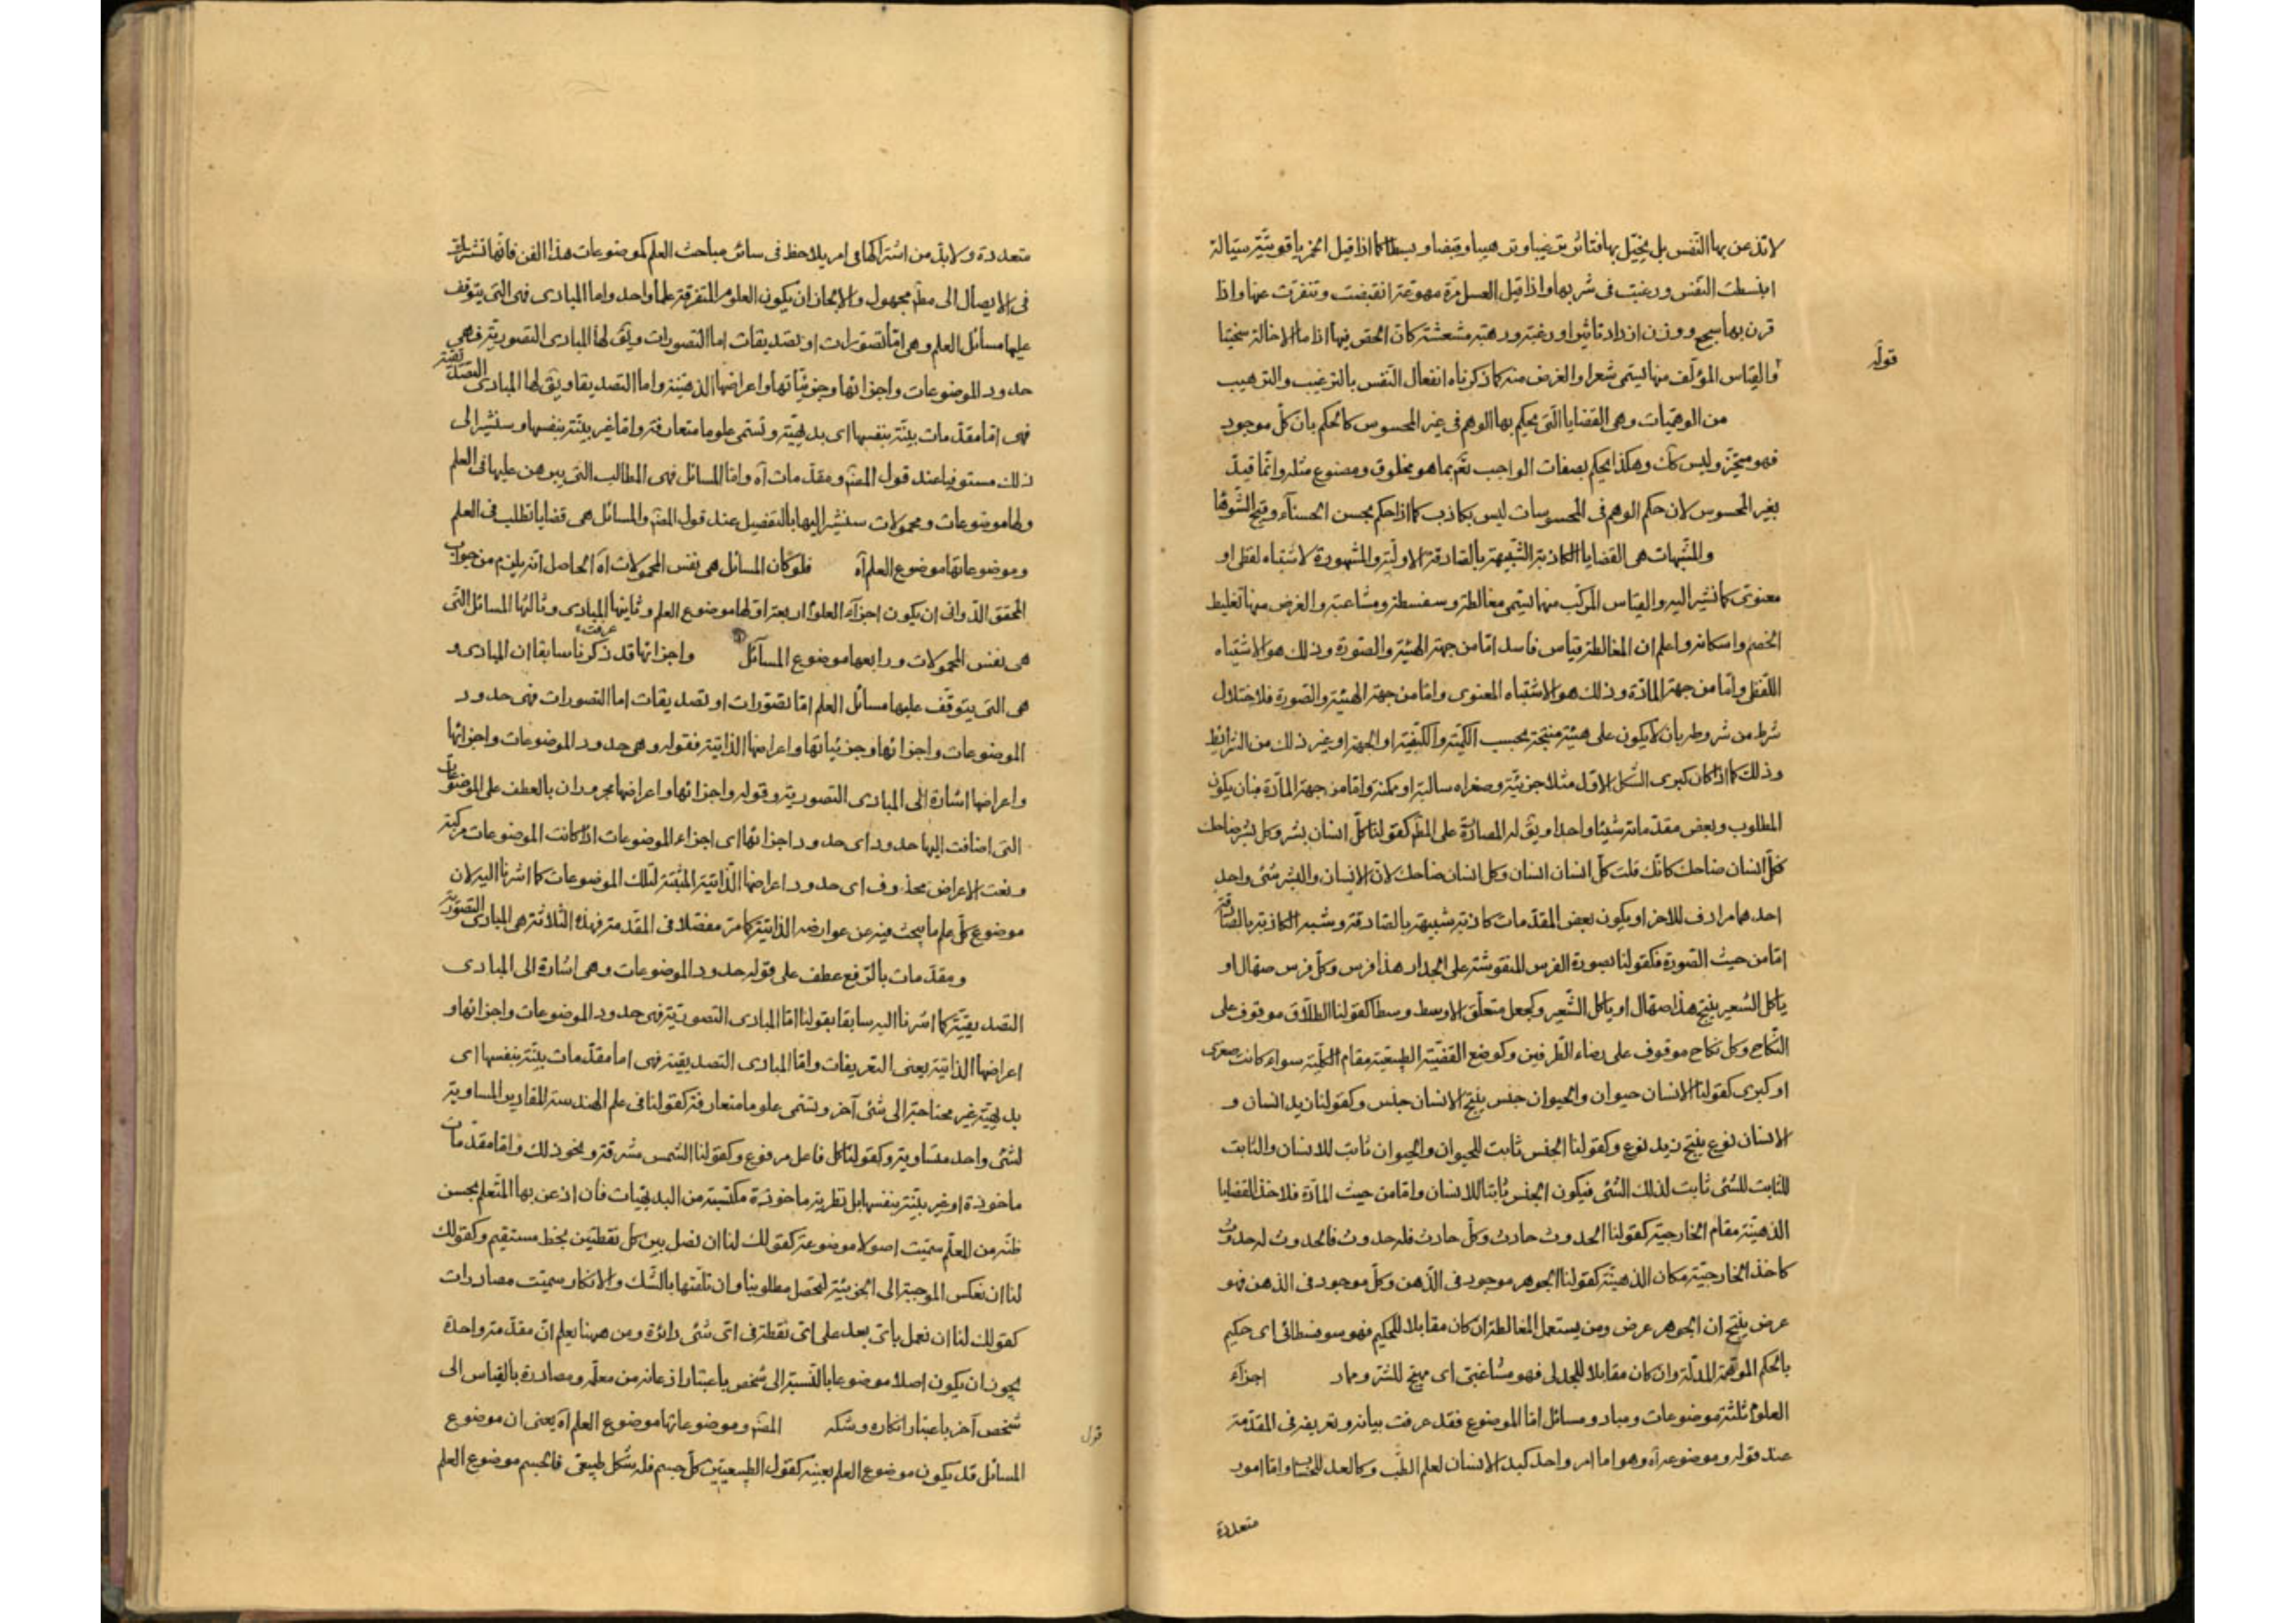 لا تذعن بها النفس بل يخيّل بها فتتأثر ترغيبا وترهيبا وقبضا وبسطا كما اذا قيل الخمر ياقوتيّة سيّالة
انبسطت النفس ورغبت فى شربها واذا قيل العسل مرة مهوعة انقبضت وتنفرت عنها واذا
قرن بها سجع ووزن ازداد تاثيرا ورغبة ورهبة
قوله
والقياس المؤلف منها ليسمى شعرا والغرض منه كما ذكرناه انفعال النفس بالترغيب والترهيب
من الوهميات وهى القضايا التى يحكم بها الوهم فى غير المحسوس كالحكم بان كلّ موجود
فهو متحيّز وليس كك وهكذا يحكم بصفات الواجب تعم بما هو مخلوق ومصنوع مثله وانما قيد
بغير المحسوس لان حكم الوهم فى المحسوسات ليس بكاذب كما اذا حكم بحسن الحسناء وقبح الشوها
والمشبهات هى القضايا الكاذبة الشبيهة بالصادقة الاولية والمشهورة لاشتباه لفظى او
معنوى كما نشير اليه والقياس المركب منها ليسمى مغالطة وسفسطة ومشاغبة والغرض منها تغليط
الخصم واسكاته واعلم ان المغالطة قياس فاسد امّا من جهة الهيئة والصورة وذلك هو الاشتباه
اللفظى وامّا من جهة المادّة وذلك هو الاشتباه المعنوى وامّا من جهة الهيئة والصورة فلاختلال
شرط من شروطه بان لا يكون على هيئة منتجة بحسب الكميّة والكيفيّة او الجهة او غير ذلك من الشرائط
وذلك كما اذا كان كبرى الشكل الاول مثلا جزئيّة وصغراه سالبة او ممكنة وامّا من جهة المادّة فبان يكون
المطلوب وبعض مقدماته شيئا واحدا ويق له المصادرة على المط كقولنا كلّ انسان بشر وكل بشر ضاحك
فكلّ انسان ضاحك كانّك قلت كلّ انسان انسان وكل انسان ضاحك لانّ الانسان والبشر شئ واحد
احدهما مرادف للاخر او يكون بعض المقدّمات كاذبة شبيهة بالصادقة وشبه الكاذبة بالصادقة
امّا من حيث الصورة فكقولنا لصورة الفرس المنقوشة على الجدار هذا فرس وكلّ فرس صهّال او
ياكل الشعير ينتج هذا صهّال او ياكل الشّعير وكجعل متعلّق الاوسط وسطا كقولنا الطلاق موقوف على
النكاح وكل نكاح موقوف على رضاء الطرفين وكوضع القضيّة الطبيعيّة مقام الكليّة سواء كانت صغرى
او كبرى كقولنا الانسان حيوان والحيوان جنس ينتج الانسان جنس وكقولنا زيد انسان و
الانسان نوع ينتج زيد نوع وكقولنا الجنس ثابت للحيوان والحيوان ثابت للانسان والثابت
للثابت للشئ ثابت لذلك الشئ فيكون الجنس ثابتا للانسان وامّا من حيث المادّة فلاخذ القضايا
الذهنيّة مقام الخارجيّة كقولنا الحدوث حادث وكلّ حادث فله حدوث فالحدوث له حدوث
كاخذ الخارجيّة مكان الذهنيّة كقولنا الجوهر موجود فى الذهن وكلّ موجود فى الذهن فهو
عرض ينتج ان الجوهر عرض ومن يستعمل المغالطة ان كان مقابلا للحكيم فهو سوفسطائى اى حكيم
بالحكم الموهمة المدلّة وان كان مقابلا للجدلى فهو مشاغبى اى مهيّج للشر اجزاء
العلوم ثلثة موضوعات ومباد ومسائل امّا الموضوع فقد عرفت بيانه وتعريفه فى المقدّمة
عند قوله وموضوعه آه وهو اما امر واحد كبدن الانسان لعلم الطب وكالعدد للحساب وامّا امور
متعددة
متعددة ولابدّ من اشتراكها فى امر يلاحظ فى سائر مباحث العلم كموضوعات هذا الفن فانّها تشترك
فى الايصال الى مط مجهول والا لجاز ان يكون العلوم المتفرقة علما واحدا وامّا المبادى فهى التى يتوقف
عليها مسائل العلم وهى امّا تصوّرات او تصديقات امّا التصورات ويق لها المبادى التصوريّة فهى
حدود الموضوعات واجزائها وجزئيّاتها واعراضها الذهنيّة وامّا التصديقا ويق لها المبادى التصديقيّة
فهى امّا مقدّمات بيّنة بنفسها اى بديهيّة وتسمى علوما متعارفة وامّا غير بيّنة بنفسها وسنشير الى
ذلك مستوفيا عند قول المص ومقدّمات آه وامّا المسائل فهى المطالب التى يبرهن عليها فى العلم
ولها موضوعات ومحمولات سنشير اليها بالتفصيل عند قول المص والمسائل هى قضايا تطلب فى العلم
وموضوعاتها موضوع العلم آه فلو كان المسائل هى نفس المحمولات آه الحاصل انه يلزم من جواب
المحقق الدوانى ان يكون اجزاء العلوم اربعة اوّلها موضوع العلم وثانيها المبادى وثالثها المسائل التى
هى نفس المحمولات ورابعها موضوع المسائل واجزائها قد ذكرنا سابقا ان المبادى
هى التى يتوقّف عليها مسائل العلم امّا تصوّرات او تصديقات اما التصورات فهى حدود
الموضوعات واجزائها وجزئياتها واعراضها الذاتيّة فقوله وهى حدود الموضوعات واجزائها
واعراضها اشارة الى المبادى التصوريّة وقوله واجزائها واعراضها مجروران بالعطف على الموضوعات
التى اضافت اليها حدود اى حدود اجزائها اى اجزاء الموضوعات اذا كانت الموضوعات مركبة
ونعت الاعراض محذوف اى حدود اعراضها الذاتيّة المثبتة لتلك الموضوعات كما اشرنا اليه لان
موضوع كلّ علم ما يبحث فيه عن عوارضه الذاتيّة كما مر مفصّلا فى المقدمة فهذه الثلاثة هى المبادى التصوّريّة
ومقدّمات بالرفع عطف على قوله حدود الموضوعات وهى اشارة الى المبادى
التصديقيّة كما اشرنا اليه سابقا بقولنا امّا المبادى التصوريّة فهى حدود الموضوعات واجزائها و
اعراضها الذاتيّة يعنى التعريفات وامّا المبادى التصديقيّة فهى اما مقدّمات بيّنة بنفسها اى
بديهيّة غير محتاجة الى شئ آخر وتسمى علوما متعارفة كقولنا فى علم الهندسة المقادير المساوية
لشئ واحد متساوية وكقولنا كل فاعل مرفوع وكقولنا الشمس مشرقة ونحو ذلك وامّا مقدّمات
ماخوذة او غير بيّنة بنفسها بل نظرية ماخوذة مكتسبة من البديهيات فان اذعن بها المتعلم بحسن
ظنّه من المعلّم سميّت اصولا موضوعة كقولك لنا ان نصل بين كل نقطتين بخط مستقيم وكقولك
لنا ان نعكس الموجبة الى الجزئيّة ليحصل مطلوبنا وان تلقّتها بالشّك والانكار سميّت مصادرات
كقولك لنا ان نعمل باىّ بعد على اىّ نقطة فى اىّ شئ دائرة ومن ههنا يعلم انّ مقدّمة واحدة
يجوز ان يكون اصلا موضوعا بالنّسبة الى شخص باعتبار اذعانه من معلّمه ومصادرة بالقياس الى
شخص آخر باعتبار انكاره وشكه المص وموضوعاتها موضوع العلم آه يعنى ان موضوع
قول
المسائل قد يكون موضوع العلم بعينه كقول الطبيعيّين كلّ جسم فله شكل طبيعى فالجسم موضوع العلم